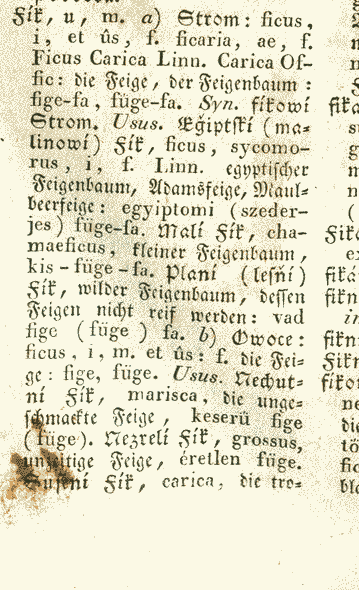 Fík, u, m. a) Strom: ficus,
i, et ûs, f. ficaria, ae, f.
Ficus Carica Linn. Carica Of-
fic: die Feige, der Feigenbaum:
fige-fa, füge-fa. Syn. fíkowí
Strom. Usus. Eğiptskí (ma-
linowí) Fík, ficus, sycomo-
rus, i, f. Linn. egyptischer
Feigenbaum, Adamsfeige, Maul-
beerfeige: egyiptomi (szeder-
jes) füge-fa. Malí Fík, cha-
maeficus, kleiner Feigenbaum,
kis-füge-fa. Planí (lesńí)
Fík, wilder Feigenbaum, dessen
Feigen nicht reif werden: vad
fige (füge) fa. b) Owoce:
ficus, i, m. et ûs: f. die Fei-
ge: fige, füge. Usus. Nechut-
ní Fík, marisca, die unge-
schmackte Feige, keserü fige
(füge). Nezrelí Fík, grossus,
unzeitige Feige, éretlen füge.
Sušení Fík, carica, die tro-